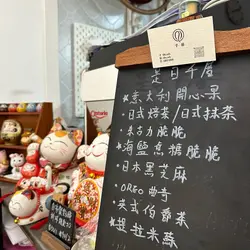 千層
是日千層
*意大利開心果
•日式焙茶/日式抹茶
•朱古力脆脆
*海鹽焦糖脆脆
•日本黑芝麻
•OREO曲奇
•英式伯爵茶
*提拉米蘇